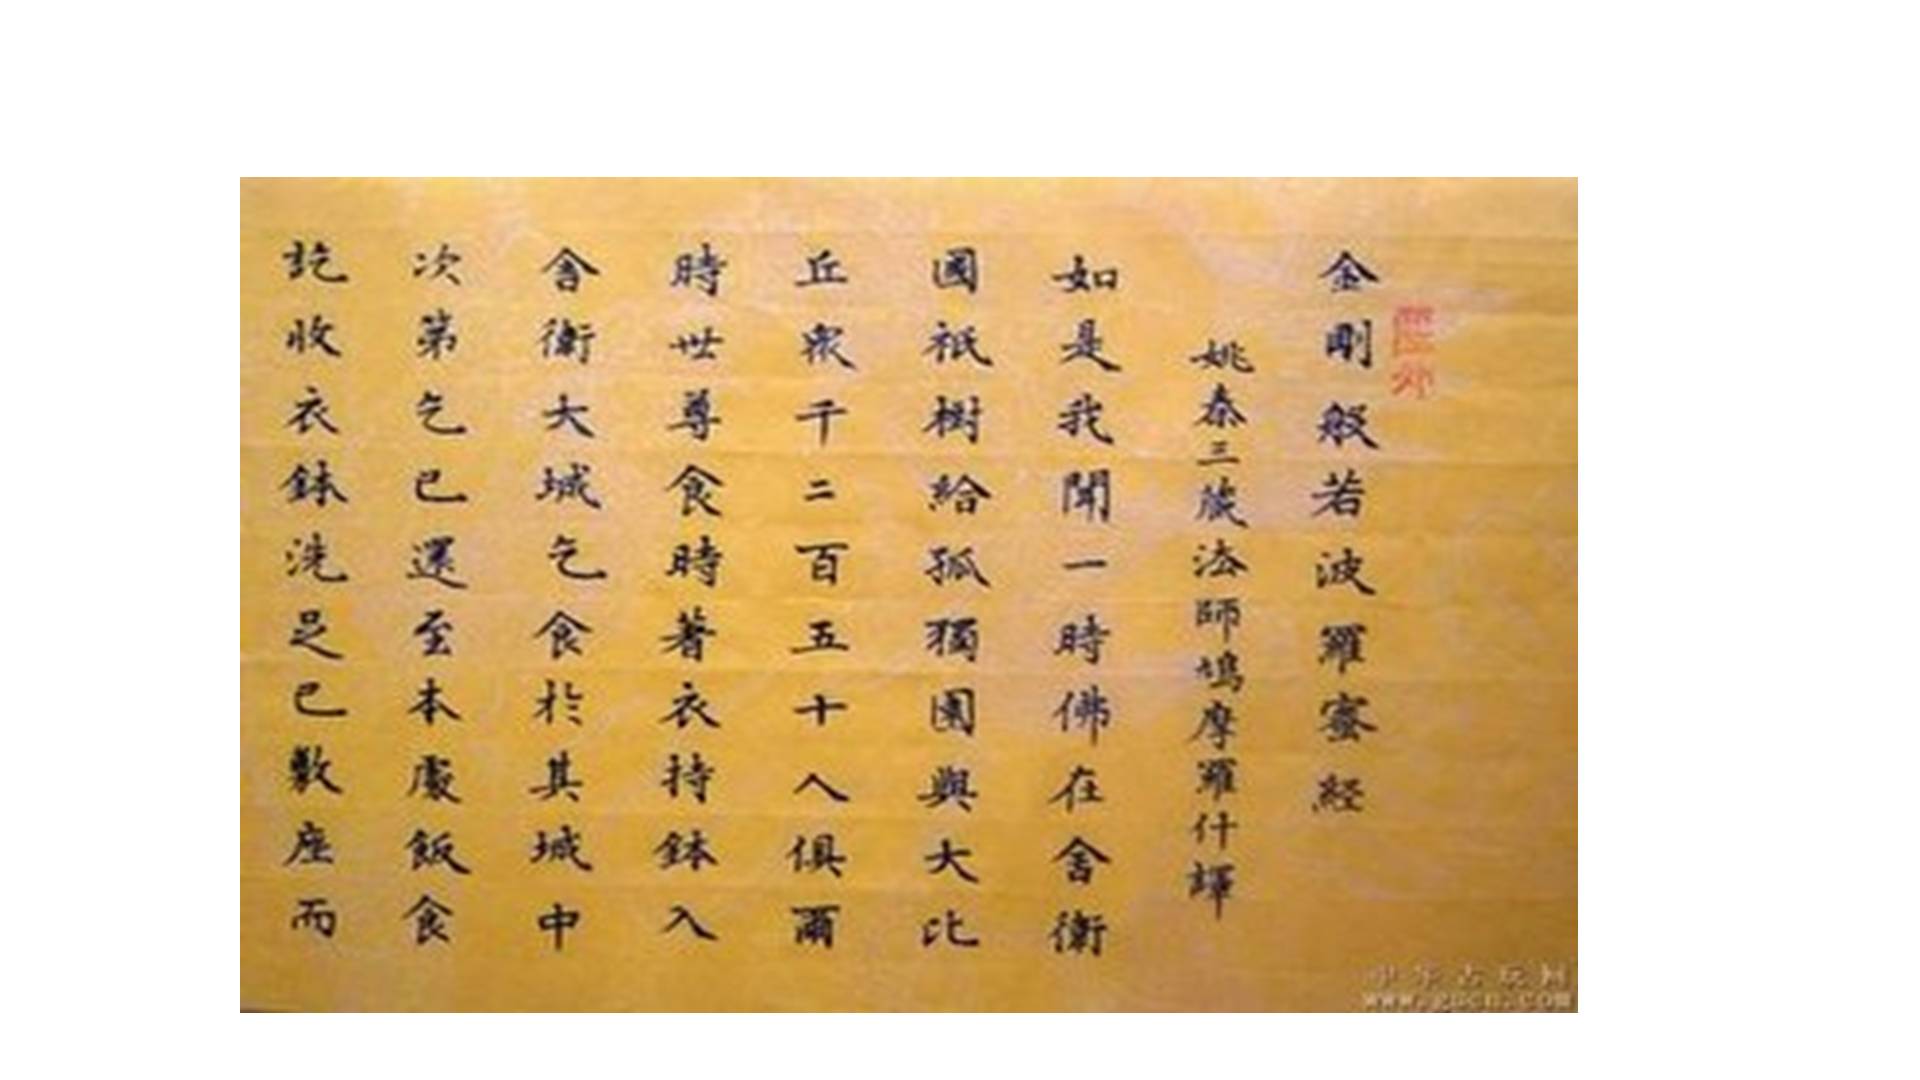 金剛般若波羅蜜経
姚秦三藏法師鳩摩羅什譯
如是我聞一時佛在舍衛
國祇樹給孤獨園與大比
丘衆千二百五十人俱爾
時世尊食時著衣持鉢入
舍衛大城乞食於其城中
次第乞已還至本處飯食
訖收衣鉢洗足已敷座而
中华古玩网
www.gucn.com